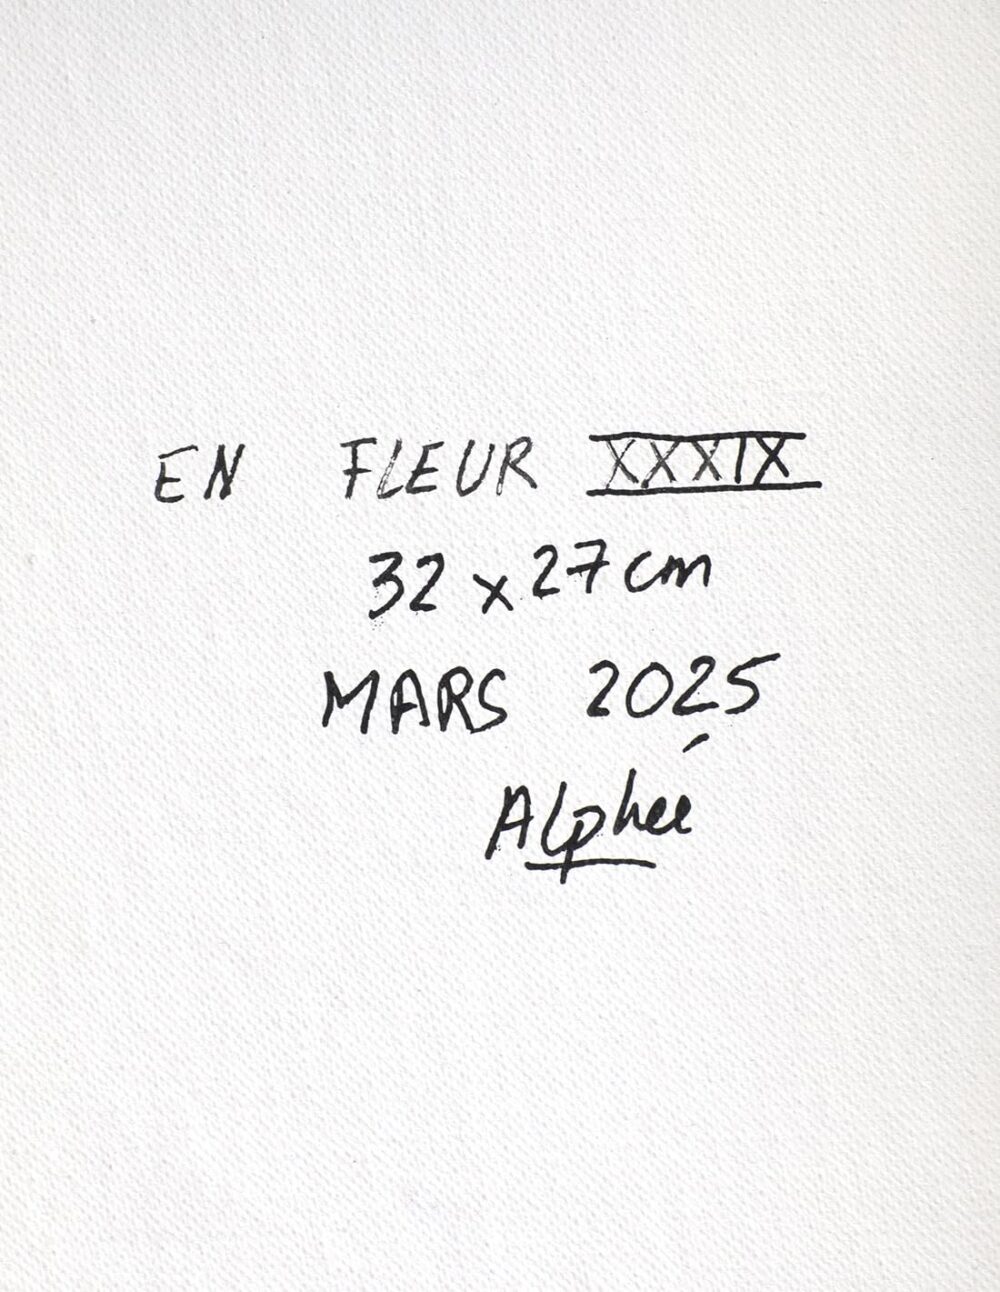 EN FLEUR XXXIX
32 x 27 cm
MARS 2025
Alphée